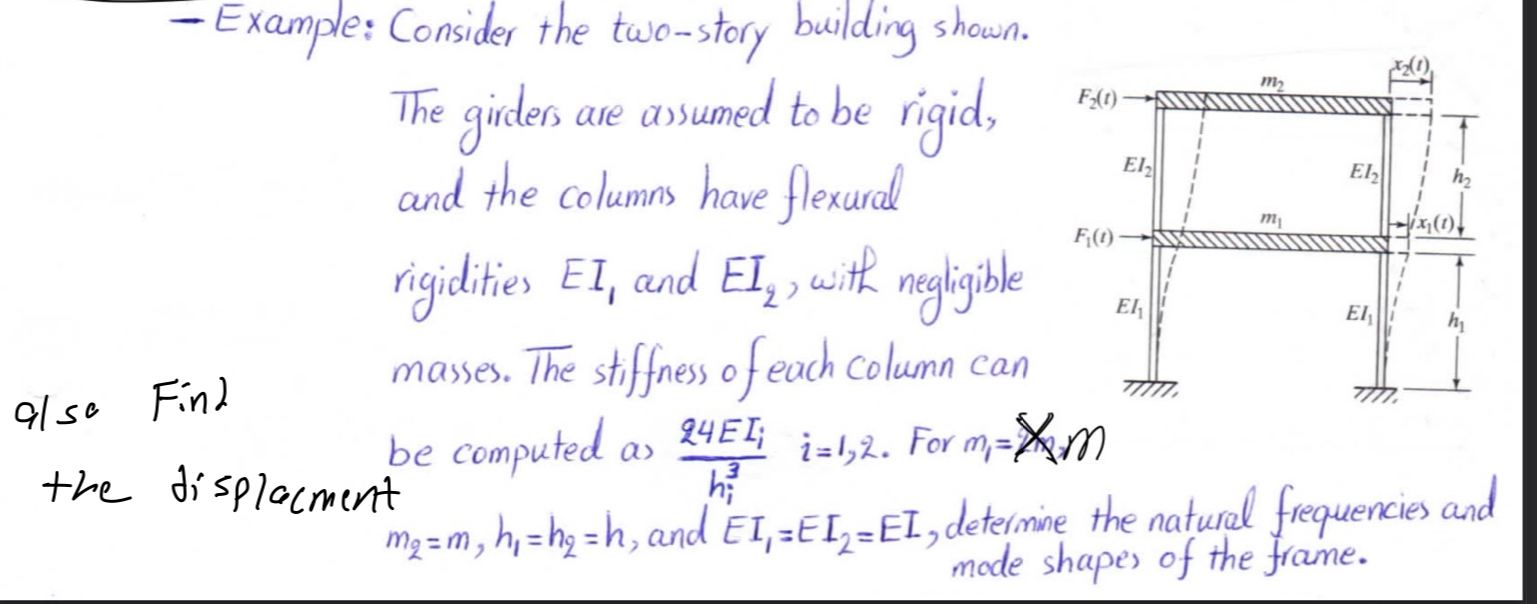 - Example: Consider the two-story building shown.
The girders are assumed to be rigid,
and the columns have flexural
rigidities EI₁ and EI₂, with negligible
masses. The stiffness of each column can
be computed as 24EIᵢ/hᵢ³ i=1,2. For m₁= m
m₂=m, h₁=h₂=h, and EI₁=EI₂=EI, determine the natural frequencies and
mode shapes of the frame.
also Find
the displacment
x₂(t)
F₂(t)
m₂
EI₂
EI₂
h₂
F₁(t)
m₁
x₁(t)
EI₁
EI₁
h₁